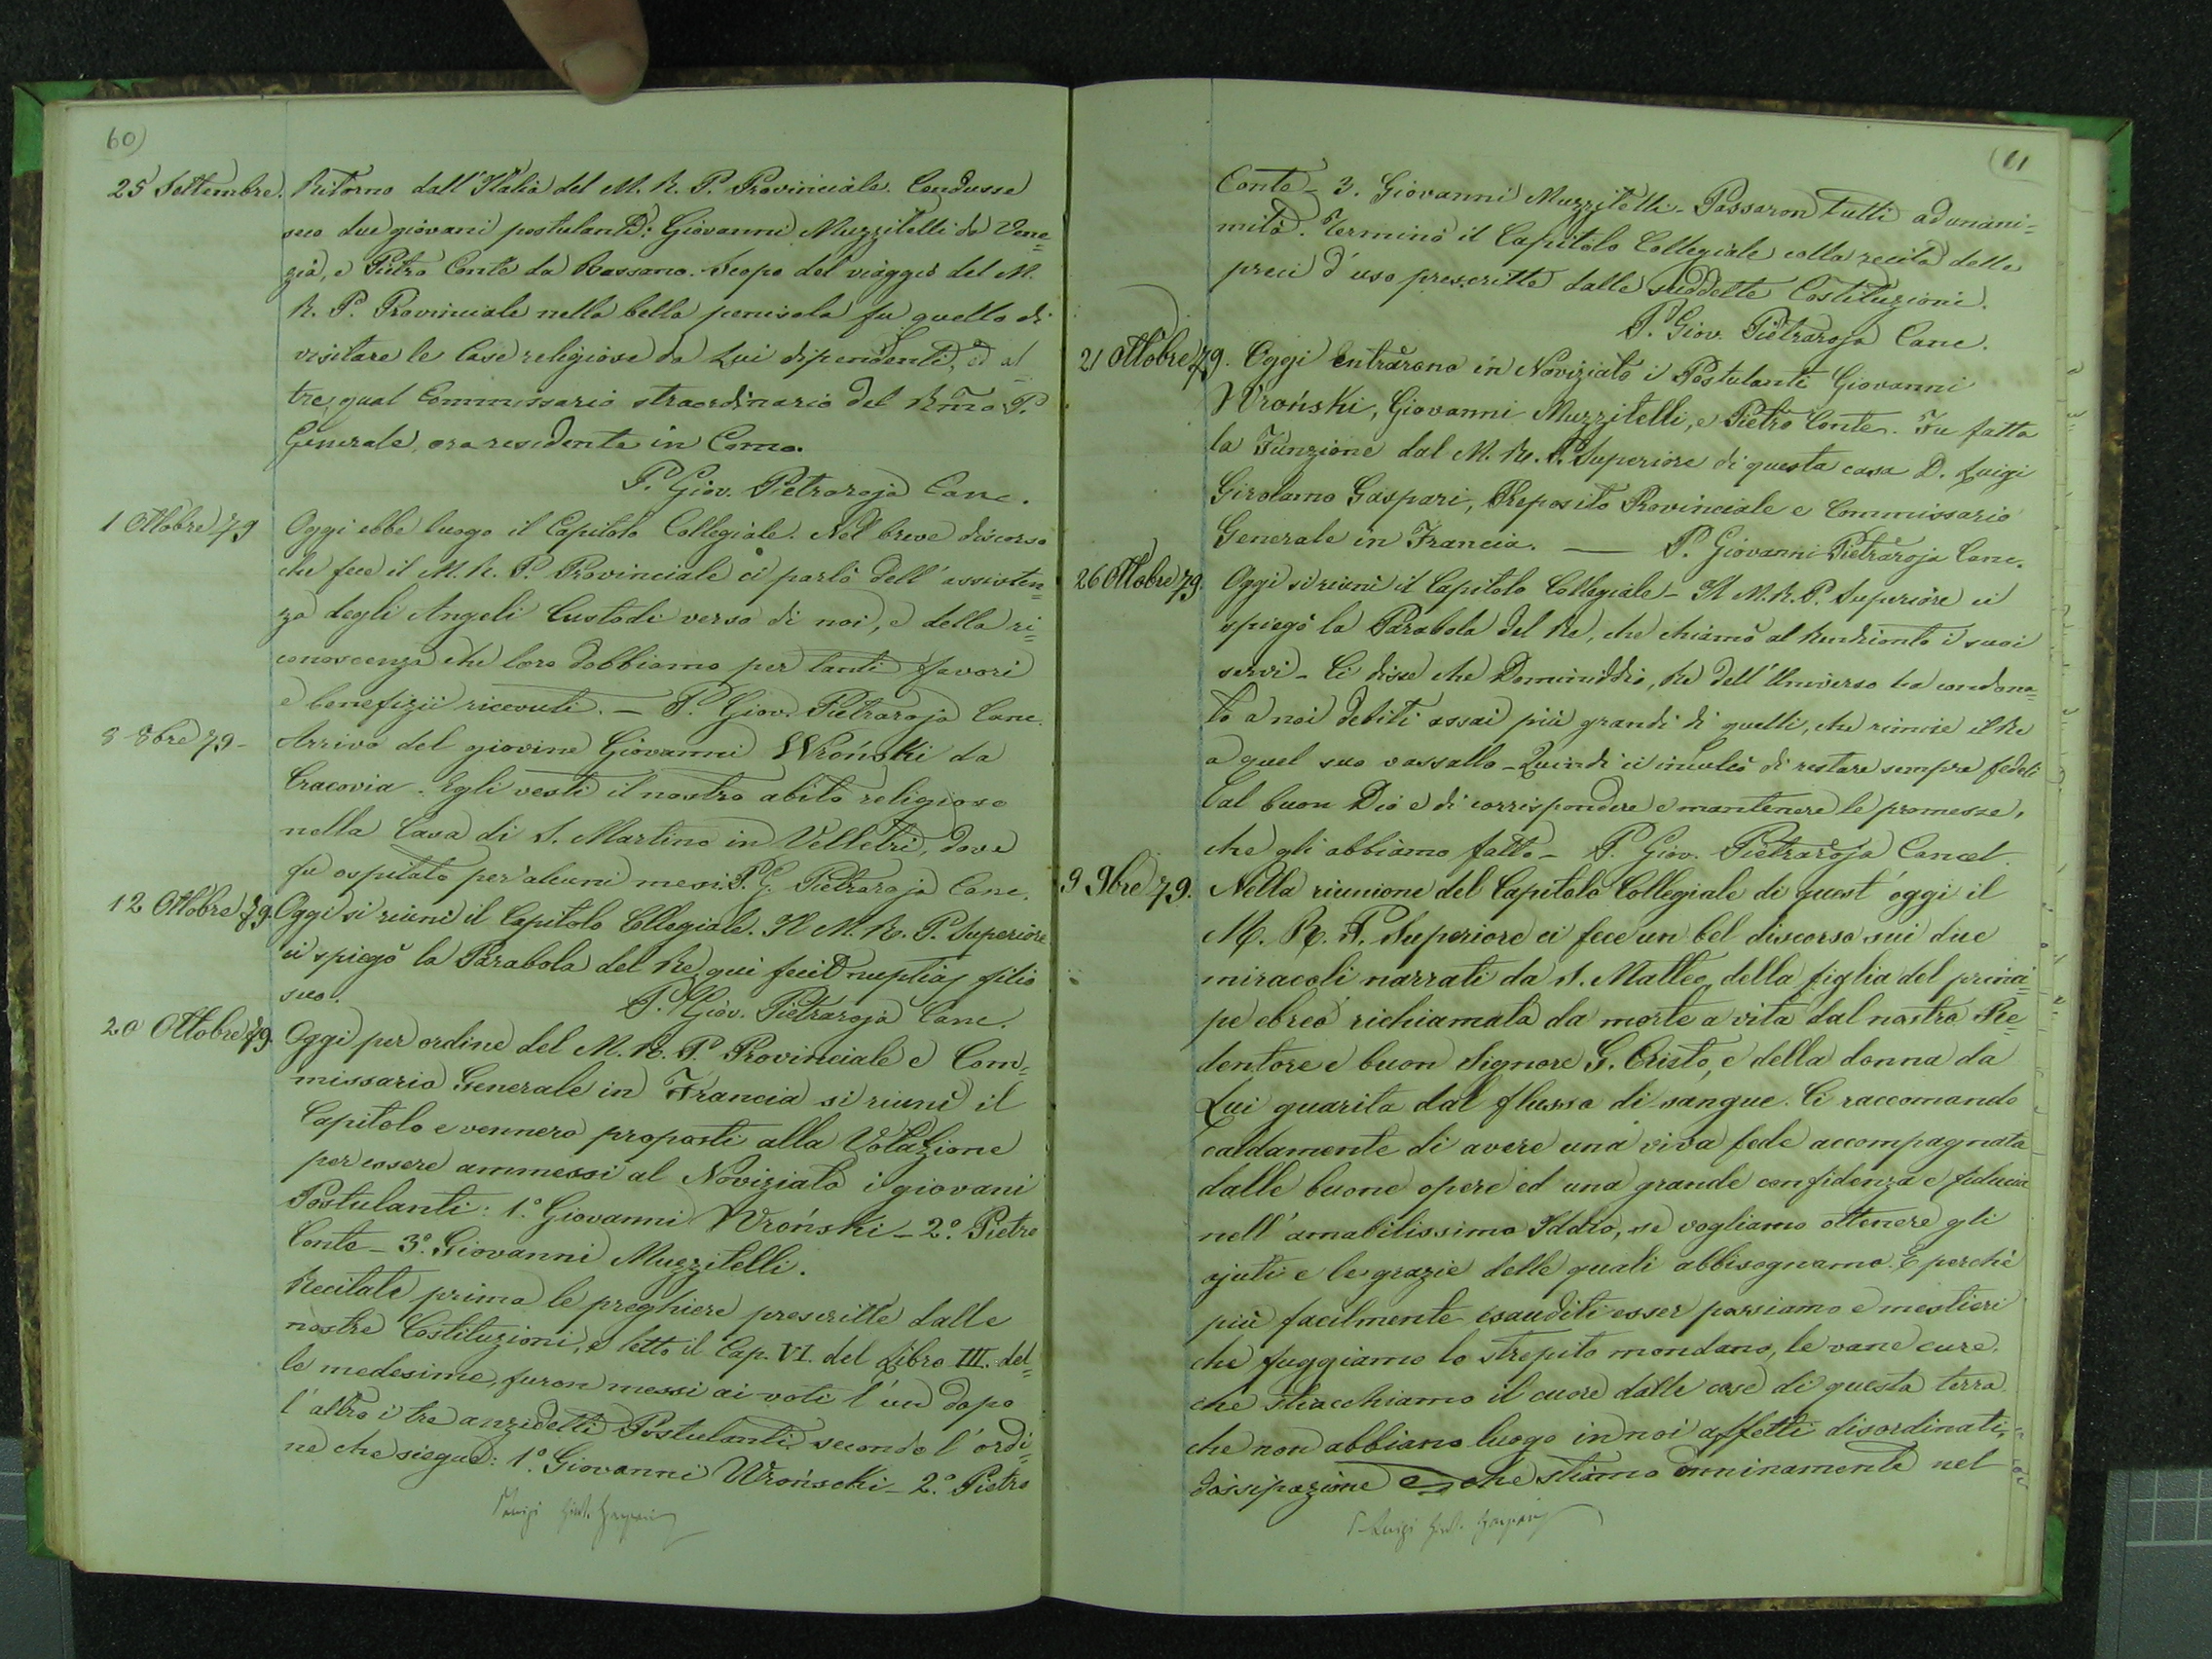 60)
25 Settembre. Ritorno dall'Italia del M. R. P. Provinciale. Condusse
seco due giovani postulanti: Giovanni Muzzitelli da Vene=
zia, e Pietro Conte da Bassano. Scopo del viaggio del M.
R. P. Provinciale nella bella penisola fu quello di
visitare le Case religiose da Lui dipendenti, ed al=
tre, qual Commissario straordinario del Rmo P.
Generale, ora residente in Como.
P. Giov. Pietraroja Canc.
1 Ottobre 79 Oggi ebbe luogo il Capitolo Collegiale. Nel breve discorso
che fece il M. R. P. Provinciale ci parlò dell'assisten=
za degli Angeli Custodi verso di noi, e della ri=
conoscenza che loro dobbiamo per tanti favori
e benefizii ricevuti. — P. Giov. Pietraroja Canc.
8 8bre 79 - Arrivo del giovine Giovanni Wroński da
Cracovia. Egli vestì il nostro abito religioso
nella Casa di S. Martino in Velletri, dove
fu ospitato per alcuni mesi. P. G. Pietraroja Canc.
12 Ottobre 79. Oggi si riunì il Capitolo Collegiale. Il M. R. P. Superiore
ci spiegò la Parabola del Re, qui fecit nuptias filio
suo. P. Giov. Pietraroja Canc.
20 Ottobre 79. Oggi per ordine del M. R. P. Provinciale e Com=
missario Generale in Francia si riunì il
Capitolo e vennero proposti alla Votazione
per essere ammessi al Noviziato i giovani
Postulanti: 1.° Giovanni Wroński - 2.° Pietro
Conte - 3.° Giovanni Muzzitelli.
Recitate prima le preghiere prescritte dalle
nostre Costituzioni, e letto il Cap. VI. del Libro III. del=
le medesime, furon messi ai voti l'un dopo
l'altro i tre anzidetti Postulanti secondo l'ordi=
ne che siegue: 1.° Giovanni Wrońscki - 2.° Pietro
P. Luigi Girol. Gaspari
(61
Conte - 3. Giovanni Muzzitelli - Passaron tutti ad unani=
mità. Terminò il Capitolo Collegiale colla recita delle
preci d'uso prescritte dalle suddette Costituzioni.
P. Giov. Pietraroja Canc.
21 Ottobre 79. Oggi entrarono in Noviziato i Postulanti Giovanni
Wroński, Giovanni Muzzitelli, e Pietro Conte. Fu fatta
la Funzione dal M. R. P. Superiore di questa casa D. Luigi
Girolamo Gaspari, Preposito Provinciale e Commissario
Generale in Francia. — P. Giovanni Pietraroja Canc.
26 Ottobre 79. Oggi si riunì il Capitolo Collegiale - Il M. R. P. Superiore ci
spiegò la Parabola del Re, che chiamò al Rendiconto i suoi
servi - Ci disse che Domineddio, Re dell'Universo ha condona=
to a noi debiti assai più grandi di quelli, che rimise il Re
a quel suo vassallo - Quindi ci inculcò di restare sempre fedeli
al buon Dio e di corrispondere e mantenere le promesse,
che gli abbiamo fatto - P. Giov. Pietraroja Cancel.
9 9bre 79. Nella riunione del Capitolo Collegiale di quest'oggi il
M. R. P. Superiore ci fece un bel discorso sui due
miracoli narrati da S. Matteo, della figlia del princi=
pe ebreo richiamata da morte a vita dal nostro Re=
dentore e buon Signore G. Cristo, e della donna da
Lui guarita dal flusso di sangue. Ci raccomandò
caldamente di avere una viva fede accompagnata
dalle buone opere ed una grande confidenza e fiducia
nell'amabilissimo Iddio, se vogliamo ottenere gli
ajuti e le grazie delle quali abbisognamo. E perchè
più facilmente esauditi esser possiamo è mestieri
che fuggiamo lo strepito mondano, le vane cure,
che stacchiamo il cuore dalle cose di questa terra
che non abbiano luogo in noi affetti disordinati,
dissipazione e che stiamo onninamente nel
P. Luigi Girol. Gaspari